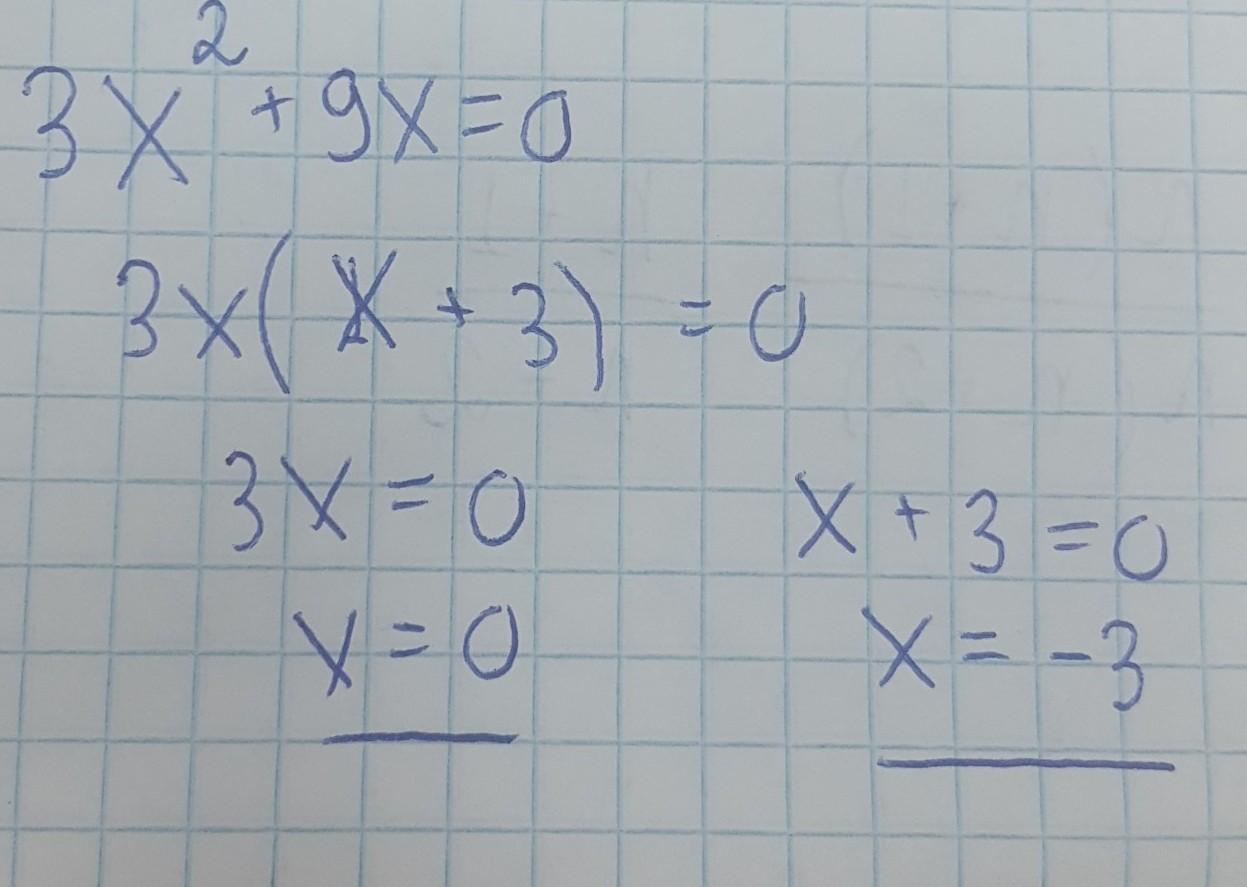 3x² + 9x = 0
3x(x + 3) = 0
3x = 0 x + 3 = 0
x = 0 x = -3